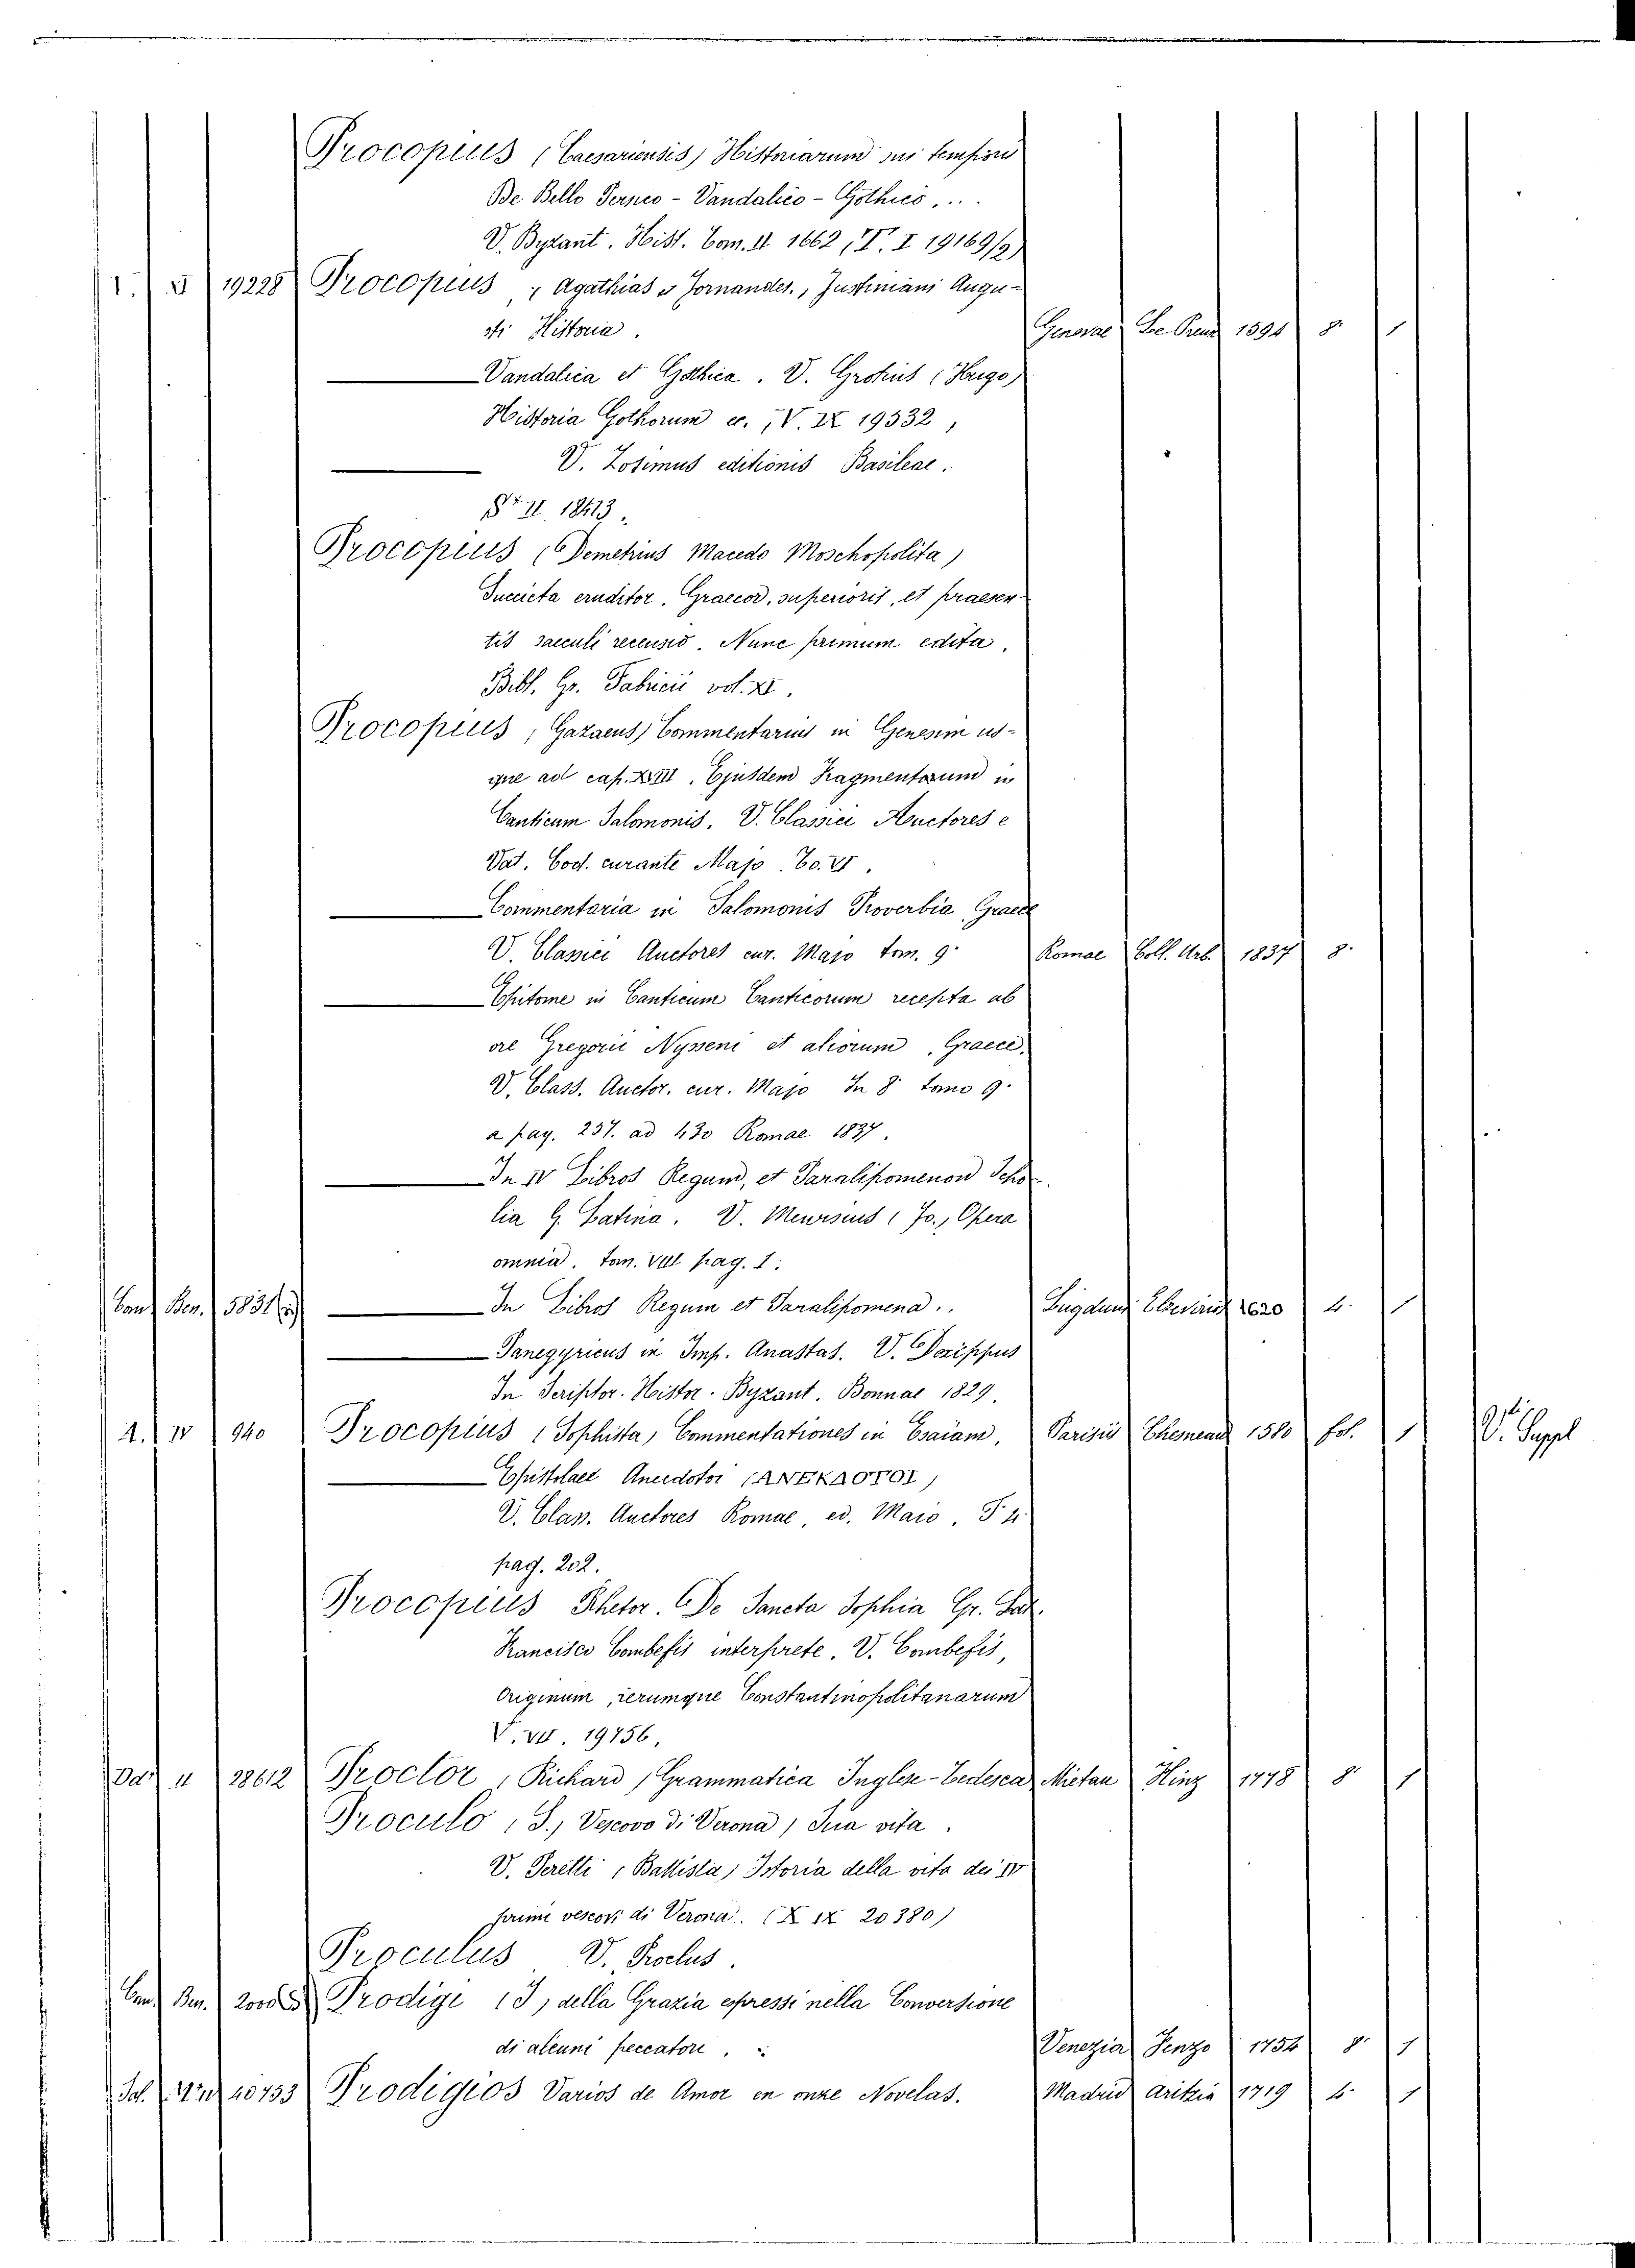 Procopius (Caesariensis) Historiarum sui temporis
De Bello Persico - Vandalico - Gothico ...
V. Byzant. Hist. Tom. II 1662 (T. I 19169/2)
I. 5 19228 Procopius, Agathias & Jornandes, Justiniani Augu-
sti Historia. Genevae Le Preux 1594 8° 1
— Vandalica et Gothica. V. Grotius (Hugo)
Historia Gothorum &. (V. IX 19532)
— V. Zosimus editionis Basileae.
II 18413.
Procopius (Demetrius Macedo Moschopolita)
Succicta eruditor. Graecor, superioris, et praesen-
tis saeculi recensio. Nunc primum edita.
Bibl. Gr. Fabricii vol. XI.
Procopius (Gazaeus) Commentarius in Genesim us-
que ad cap. XVIII. Ejusdem Fragmentorum in
Canticum Salomonis. V. Classici Auctores e
Vat. Cod. curante Majo. To. VI.
— Commentaria in Salomonis Proverbia, Graece
V. Classici Auctores cur. Majo tom. 9° Romae Coll. Urb. 1837 8°
— Epitome in Canticum Canticorum recepta ab
ore Gregorii Nysseni et aliorum, Graece,
V. Class. Auctor. cur. Majo In 8° tomo 9°
a pag. 257. ad 430 Romae 1837.
— In IV Libros Regum, et Paralipomenon Scho-
lia G. Latina. V. Meursius (Jo.) Opera
omnia. tom. VIII pag. 1.
Cant Ben. 5831 — In Libros Regum et Paralipomena.. Lugduni Elzevirius 1620 4° 1
— Panegyricus in Imp. Anastas. V. Dexippus
In Scriptor. Histor. Byzant. Bonnae 1829.
A. IV 940 Procopius (Sophista) Commentationes in Esaiam. Parisiis Chemeand 1580 fol. 1 V. Suppl
— Epistolae Anecdotoi (ΑΝΕΚΔΟΤΟΙ)
V. Class. Auctores Romae, ed. Maio, T. 4
pag. 202.
Procopius Rhetor. De Sancta Sophia Gr. Lat.
Francisco Combefis interprete. V. Combefis,
Originum, rerumque Constantinopolitanarum
V. VII. 19756.
Dat II 28612 Proctor (Richard) Grammatica Inglese-Tedesca Mietau Hinz 1778 8° 1
Proculo (S.) Vescovo di Verona) Sua vita.
V. Peretti (Battista) Istoria della vita dei IV
primi vescovi di Verona. (X IX 20380)
Proculus V. Proclus.
Cant Ben. Prodigi (I) della Grazia espressi nella Conversione
di alcuni peccatori. Venezia Penzo 1754 8° 1
Sal. 40733 Prodigios Varios de Amor en onze Novelas. Madrid Aritzia 1719 4° 1